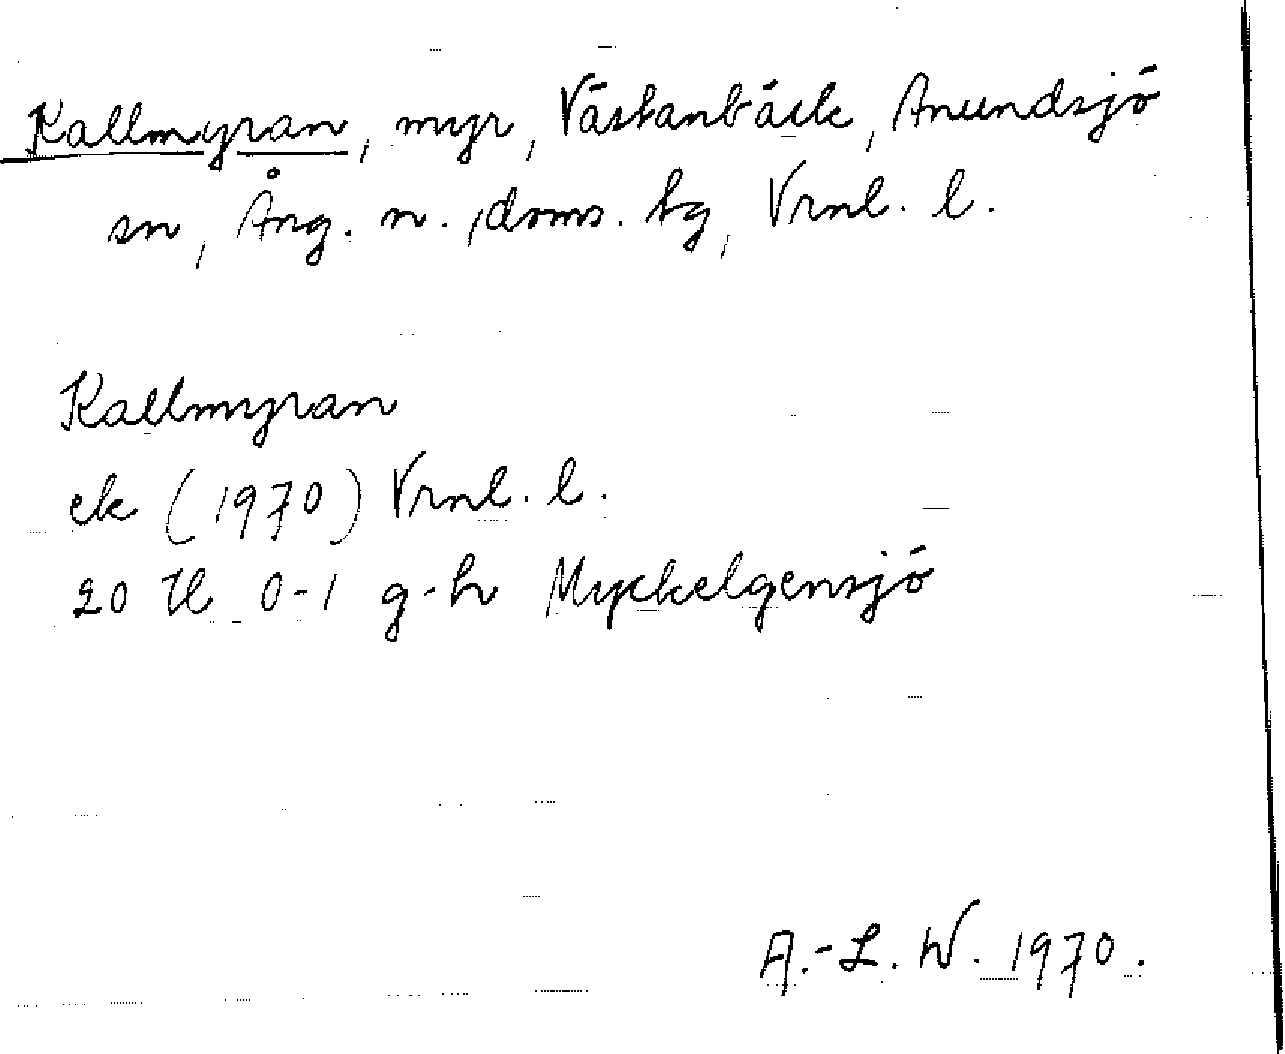 Kallmyran, myr, Västanbäck, Anundsjö
sn, Ång. n. doms. tg, Vrnl. l.
Kallmyran
ek (1970) Vrnl. l.
20 H 0-1 g-h Myckelgensjö
A.-L. W. 1970.